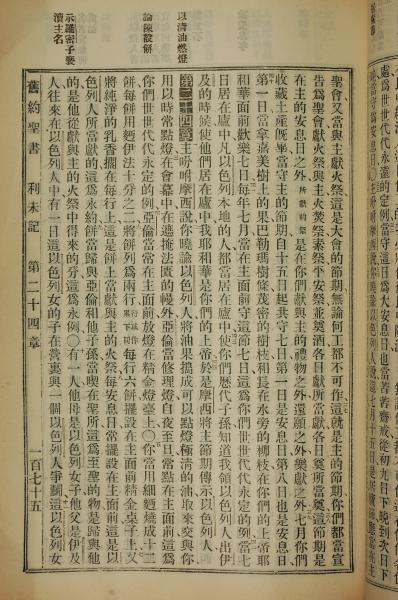 處爲世世代代永遠的定例當守這日爲大安息日也當苦苦齋戒從初九日下晚到次日下
以清油燃燈
論陳設餅
瀆主名
聖會又當與主獻火祭這是大會的節期無論何工都不可作這就是主的節期你們都當宣
告爲聖會獻火祭與主火焚祭素祭平安祭並奠酒各日獻所當獻各日奠所當奠這節期是
在主的安息日之外所獻的祭是在你們獻與主的禮物之外還願之外樂獻之外七月你們
收藏土產旣畢當守主的節期自十五日起共守七日第一日是安息日第八日也是安息日
第一日當拿嘉美樹上的果巴勒瑪樹條茂密的樹枝和長在水旁的柳枝在你們的上帝耶
和華面前歡樂七日每年七月當在主面前守這節七日這爲你們世世代代永定的例當七
日居在廬中凡以色列本地的人都當居在廬中使你們歷代子孫知道我領以色列人出伊
及的時候使他們居在廬中我耶和華是你們的上帝於是摩西將主節期傳示以色列人
第二十四章主吩咐摩西說你曉諭以色列人將油果搗成可以點燈極清的油取來交與你
用以時常點燈在會幕中在遮掩法匱的幔外亞倫當修理燈自夜至旦常點在主面前這爲
你們世世代代永定的例亞倫當常在主面前放燈在精金燈臺上○你當用細麪燒成十二
餅每餅用麪伊法十分之二將餅列爲兩行行或作累下同每行六餅擺設在主面前精金桌子上又
將純淨的乳香擱在每行上這是餅上當獻與主的火祭每安息日常擺設在主面前這是以
色列人所當獻的這爲永約餅當歸與亞倫和他子孫當喫在聖所這爲至聖的物是歸與他
的是他從獻與主的火祭中得來的分這爲永例○有一人他母是以色列女子他父是伊及
人往來在以色列人中有一日這以色列女的子在營裏與一個以色列人爭鬬這以色列女
舊約聖書 利未記 第二十四章 一百七十五